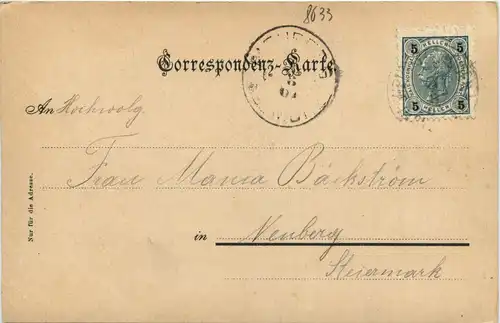 8633
5 HELLER 5
5 5
Correspondenz-Karte.
An Hochwolg.
Frau Maria Bäckström
in Neuberg
Steiermark
Nur für die Adresse.